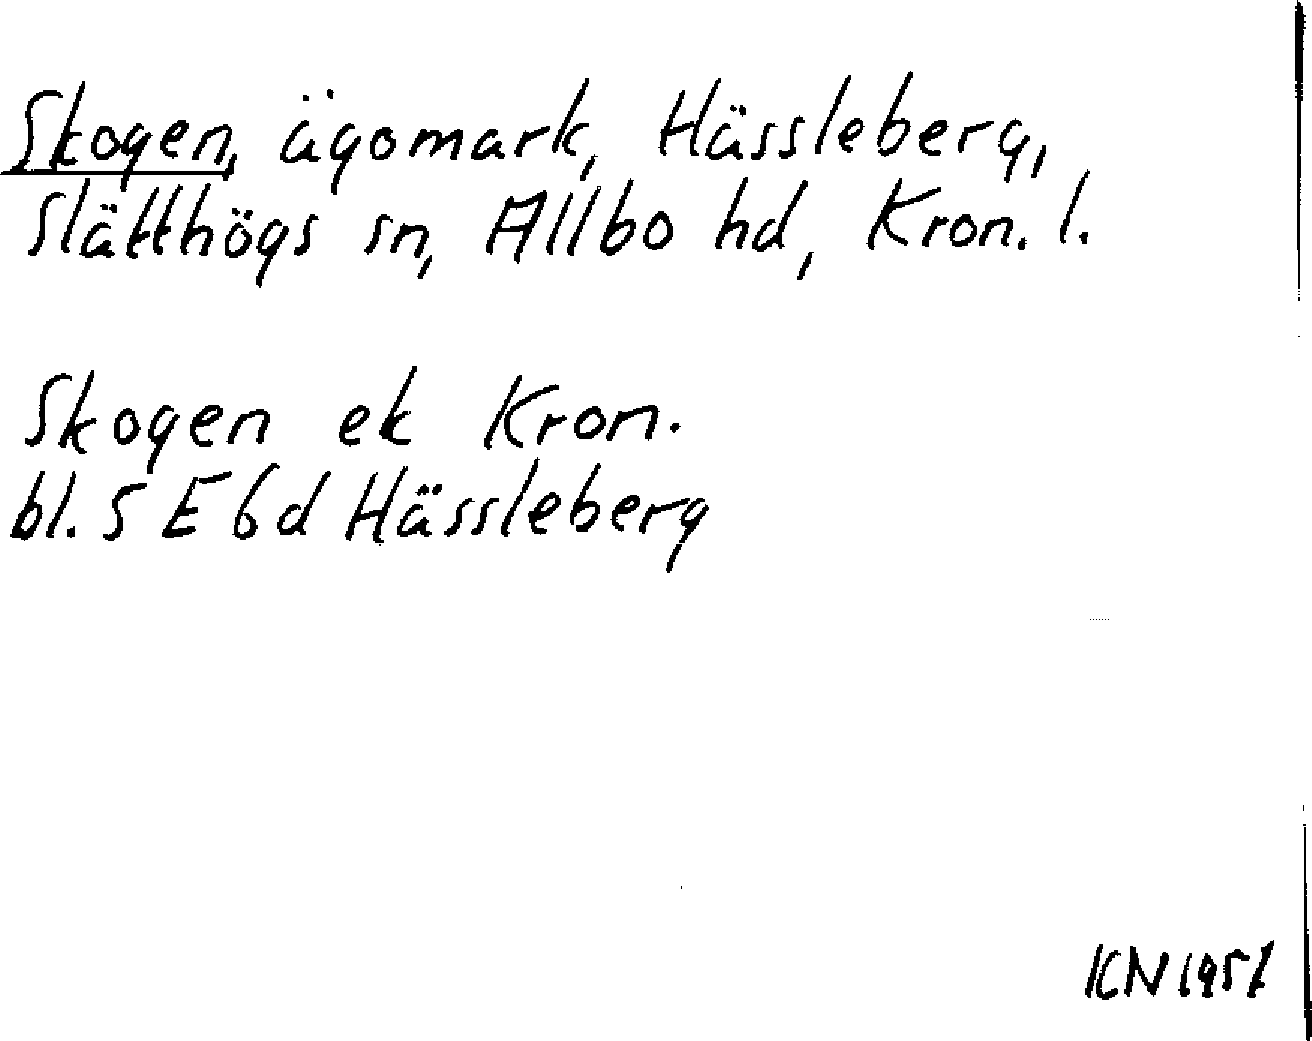 Skogen, ägomark, Hässleberg,
Slätthögs sn, Allbo hd, Kron. l.
Skogen ek Kron.
bl. 5 E 6d Hässleberg
KN 1951